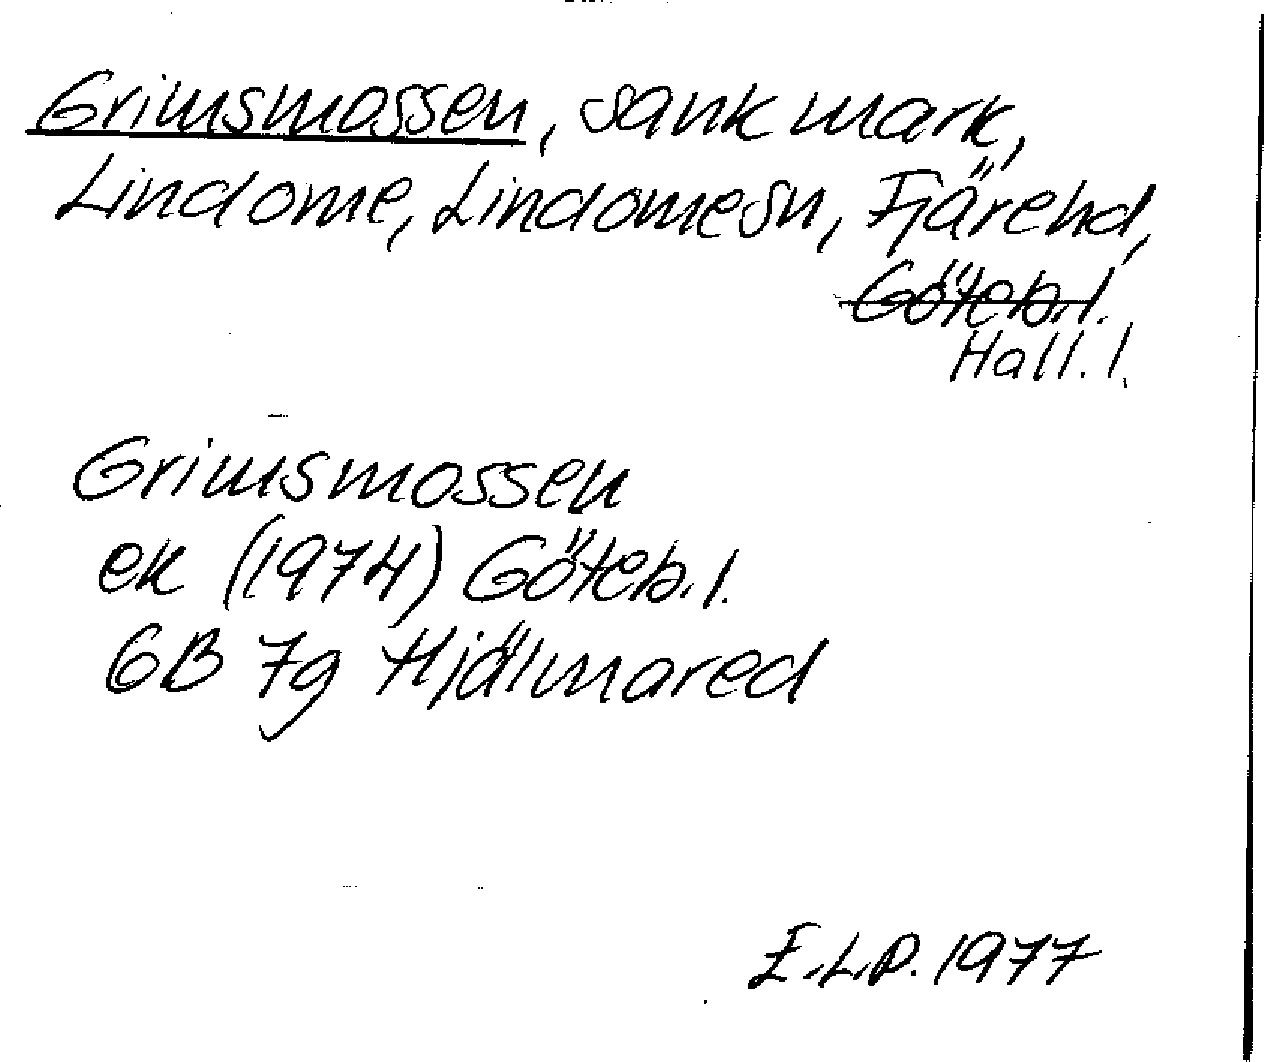 Grimsmossen, sank mark,
Lindome, Lindomesn, Fjärehd,
Göteb.l.
Hall.l.
Grimsmossen
ek (1974) Göteb.l.
6B 7g Hjälmared
E.L.P. 1977